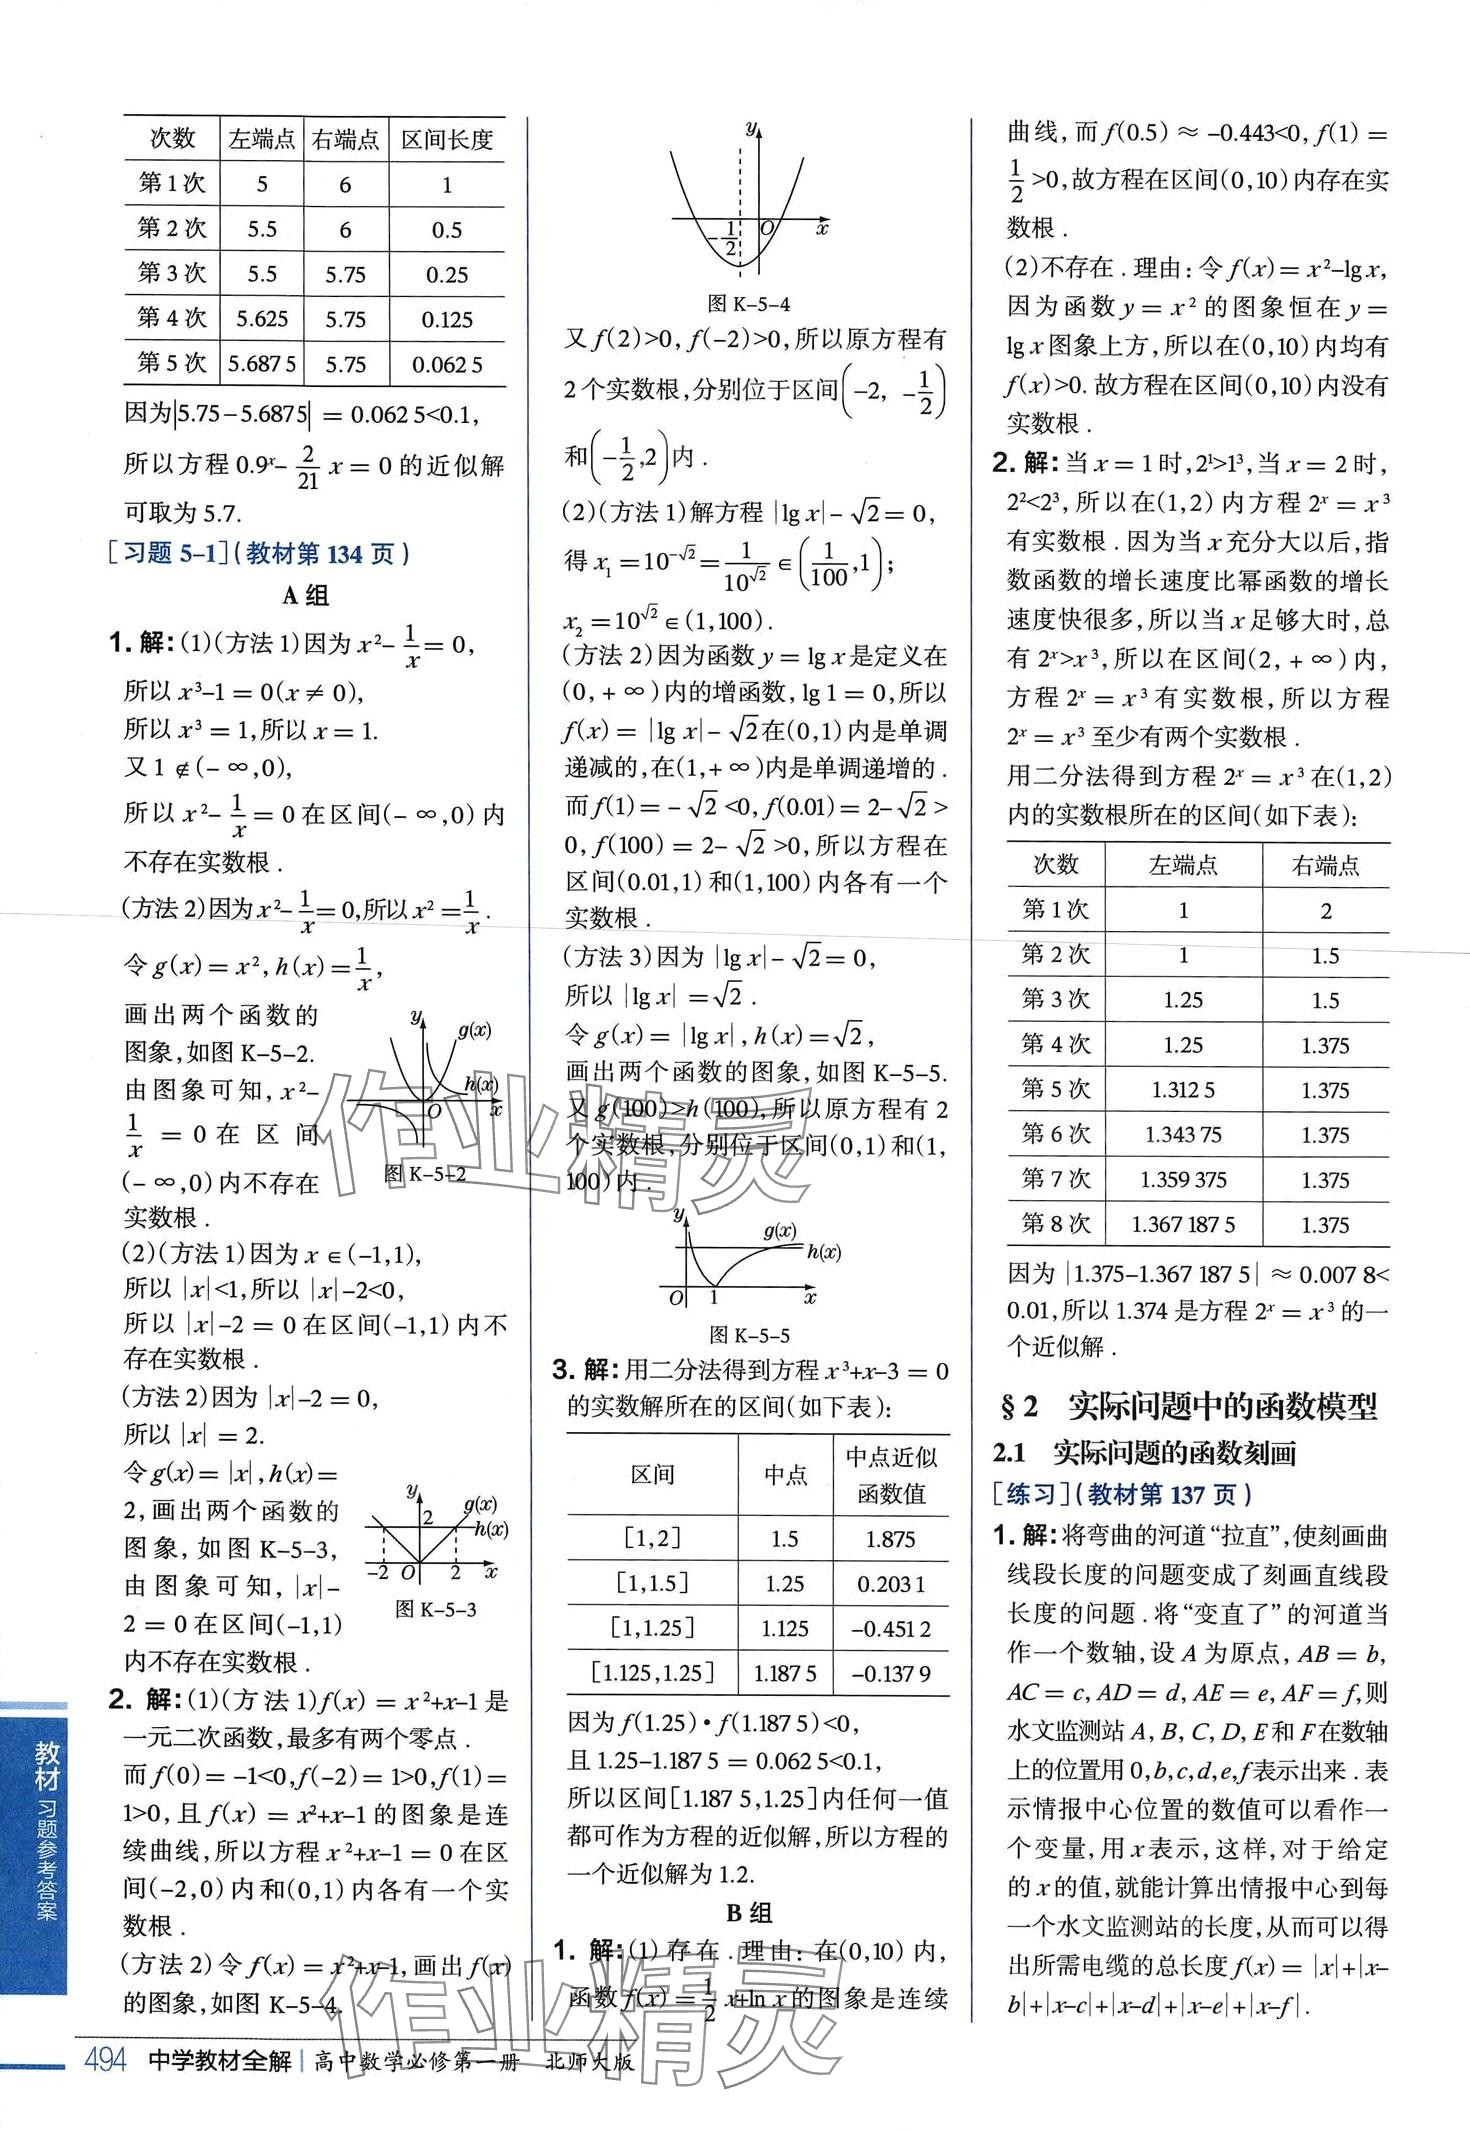 次数 左端点 右端点 区间长度
第1次 5 6 1
第2次 5.5 6 0.5
第3次 5.5 5.75 0.25
第4次 5.625 5.75 0.125
第5次 5.687 5 5.75 0.062 5
因为|5.75-5.6875| = 0.062 5<0.1,
所以方程 0.9ˣ- 2/21 x = 0 的近似解
可取为 5.7.
[习题 5-1](教材第 134 页)
A 组
1. 解:(1)(方法 1)因为 x²- 1/x = 0,
所以 x³-1 = 0(x ≠ 0),
所以 x³ = 1,所以 x = 1.
又 1 ∉(- ∞,0),
所以 x²- 1/x = 0 在区间(- ∞,0) 内
不存在实数根 .
(方法 2)因为 x²- 1/x = 0,所以 x² = 1/x .
令 g(x) = x², h(x) = 1/x,
画出两个函数的
图象,如图 K-5-2.
由图象可知, x²-
1/x = 0 在 区 间
(- ∞,0) 内不存在
实数根 .
y g(x) h(x) O x
图 K-5-2
(2)(方法 1)因为 x ∈(-1,1),
所以 |x|<1,所以 |x|-2<0,
所以 |x|-2 = 0 在区间(-1,1) 内不
存在实数根 .
(方法 2)因为 |x|-2 = 0,
所以 |x| = 2.
令 g(x)= |x|, h(x)=
2,画出两个函数的
图象, 如图 K-5-3,
由图象可知, |x|-
2 = 0 在区间(-1,1)
内不存在实数根 .
y g(x) 2 h(x) -2 O 2 x
图 K-5-3
2. 解:(1)(方法 1)f(x) = x²+x-1 是
一元二次函数,最多有两个零点 .
而 f(0) = -1<0,f(-2) = 1>0,f(1) =
1>0, 且 f(x) = x²+x-1 的图象是连
续曲线,所以方程 x²+x-1 = 0 在区
间(-2,0) 内和(0,1) 内各有一个实
数根 .
(方法 2)令 f(x) = x²+x-1,画出 f(x)
的图象,如图 K-5-4.
y -1/2 O x
图 K-5-4
又 f(2)>0, f(-2)>0,所以原方程有
2 个实数根,分别位于区间(-2, -1/2)
和(-1/2,2)内 .
(2)(方法 1)解方程 |lg x|- √2 = 0,
得 x₁ = 10^(-√2) = 1/10^√2 ∈ (1/100,1);
x₂ = 10^√2 ∈ (1,100).
(方法 2)因为函数 y = lg x 是定义在
(0,+ ∞) 内的增函数, lg 1 = 0,所以
f(x) = |lg x|- √2 在(0,1) 内是单调
递减的,在(1,+ ∞)内是单调递增的 .
而 f(1) = - √2 <0, f(0.01) = 2- √2 >
0, f(100) = 2- √2 >0,所以方程在
区间(0.01,1) 和(1,100) 内各有一个
实数根 .
(方法 3)因为 |lg x|- √2 = 0,
所以 |lg x| = √2 .
令 g(x) = |lg x|, h(x) = √2,
画出两个函数的图象,如图 K-5-5.
又 g(100)>h(100),所以原方程有 2
个实数根,分别位于区间(0,1) 和(1,
100) 内 .
y g(x) h(x) O 1 x
图 K-5-5
3. 解:用二分法得到方程 x³+x-3 = 0
的实数解所在的区间(如下表):
区间 中点 中点近似函数值
[1,2] 1.5 1.875
[1,1.5] 1.25 0.203 1
[1,1.25] 1.125 -0.451 2
[1.125,1.25] 1.187 5 -0.137 9
因为 f(1.25)·f(1.187 5)<0,
且 1.25-1.187 5 = 0.062 5<0.1,
所以区间[1.187 5,1.25]内任何一值
都可作为方程的近似解,所以方程的
一个近似解为 1.2.
B 组
1. 解:(1) 存在 . 理由: 在(0,10) 内,
函数 f(x) = 1/2 x+ln x 的图象是连续
曲线, 而 f(0.5) ≈ -0.443<0, f(1) =
1/2 >0,故方程在区间(0,10) 内存在实
数根 .
(2)不存在 . 理由:令 f(x) = x²-lg x,
因为函数 y = x² 的图象恒在 y =
lg x 图象上方,所以在(0,10) 内均有
f(x)>0. 故方程在区间(0,10) 内没有
实数根 .
2. 解:当 x = 1 时, 2¹>1³, 当 x = 2 时,
2²<2³, 所以在(1,2) 内方程 2ˣ = x³
有实数根 . 因为当 x 充分大以后, 指
数函数的增长速度比幂函数的增长
速度快很多,所以当 x 足够大时,总
有 2ˣ>x³, 所以在区间(2, + ∞) 内,
方程 2ˣ = x³ 有实数根, 所以方程
2ˣ = x³ 至少有两个实数根 .
用二分法得到方程 2ˣ = x³ 在(1,2)
内的实数根所在的区间(如下表):
次数 左端点 右端点
第1次 1 2
第2次 1 1.5
第3次 1.25 1.5
第4次 1.25 1.375
第5次 1.312 5 1.375
第6次 1.343 75 1.375
第7次 1.359 375 1.375
第8次 1.367 187 5 1.375
因为 |1.375-1.367 187 5| ≈ 0.007 8<
0.01,所以 1.374 是方程 2ˣ = x³ 的一
个近似解 .
§ 2 实际问题中的函数模型
2.1 实际问题的函数刻画
[练习](教材第 137 页)
1. 解:将弯曲的河道“拉直”,使刻画曲
线段长度的问题变成了刻画直线段
长度的问题 . 将“变直了”的河道当
作一个数轴,设 A 为原点, AB = b,
AC = c, AD = d, AE = e, AF = f,则
水文监测站 A, B, C, D, E 和 F 在数轴
上的位置用 0,b,c,d,e,f 表示出来 . 表
示情报中心位置的数值可以看作一
个变量,用 x 表示,这样,对于给定
的 x 的值,就能计算出情报中心到每
一个水文监测站的长度,从而可以得
出所需电缆的总长度 f(x) = |x|+|x-
b|+|x-c|+|x-d|+|x-e|+|x-f|.
教材 习题参考答案
494 中学教材全解 | 高中数学必修第一册 北师大版
作业精灵
作业精灵